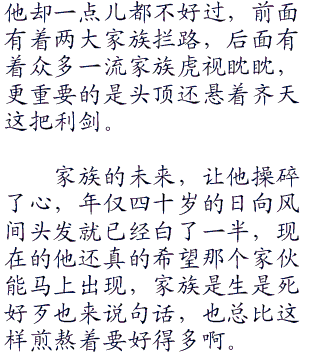 他却一点儿都不好过，前面
有着两大家族拦路，后面有
着众多一流家族虎视眈眈，
更重要的是头顶还悬着齐天
这把利剑。
家族的未来，让他操碎
了心，年仅四十岁的日向风
间头发就已经白了一半，现
在的他还真的希望那个家伙
能马上出现，家族是生是死
好歹也来说句话，也总比这
样煎熬着要好得多啊。